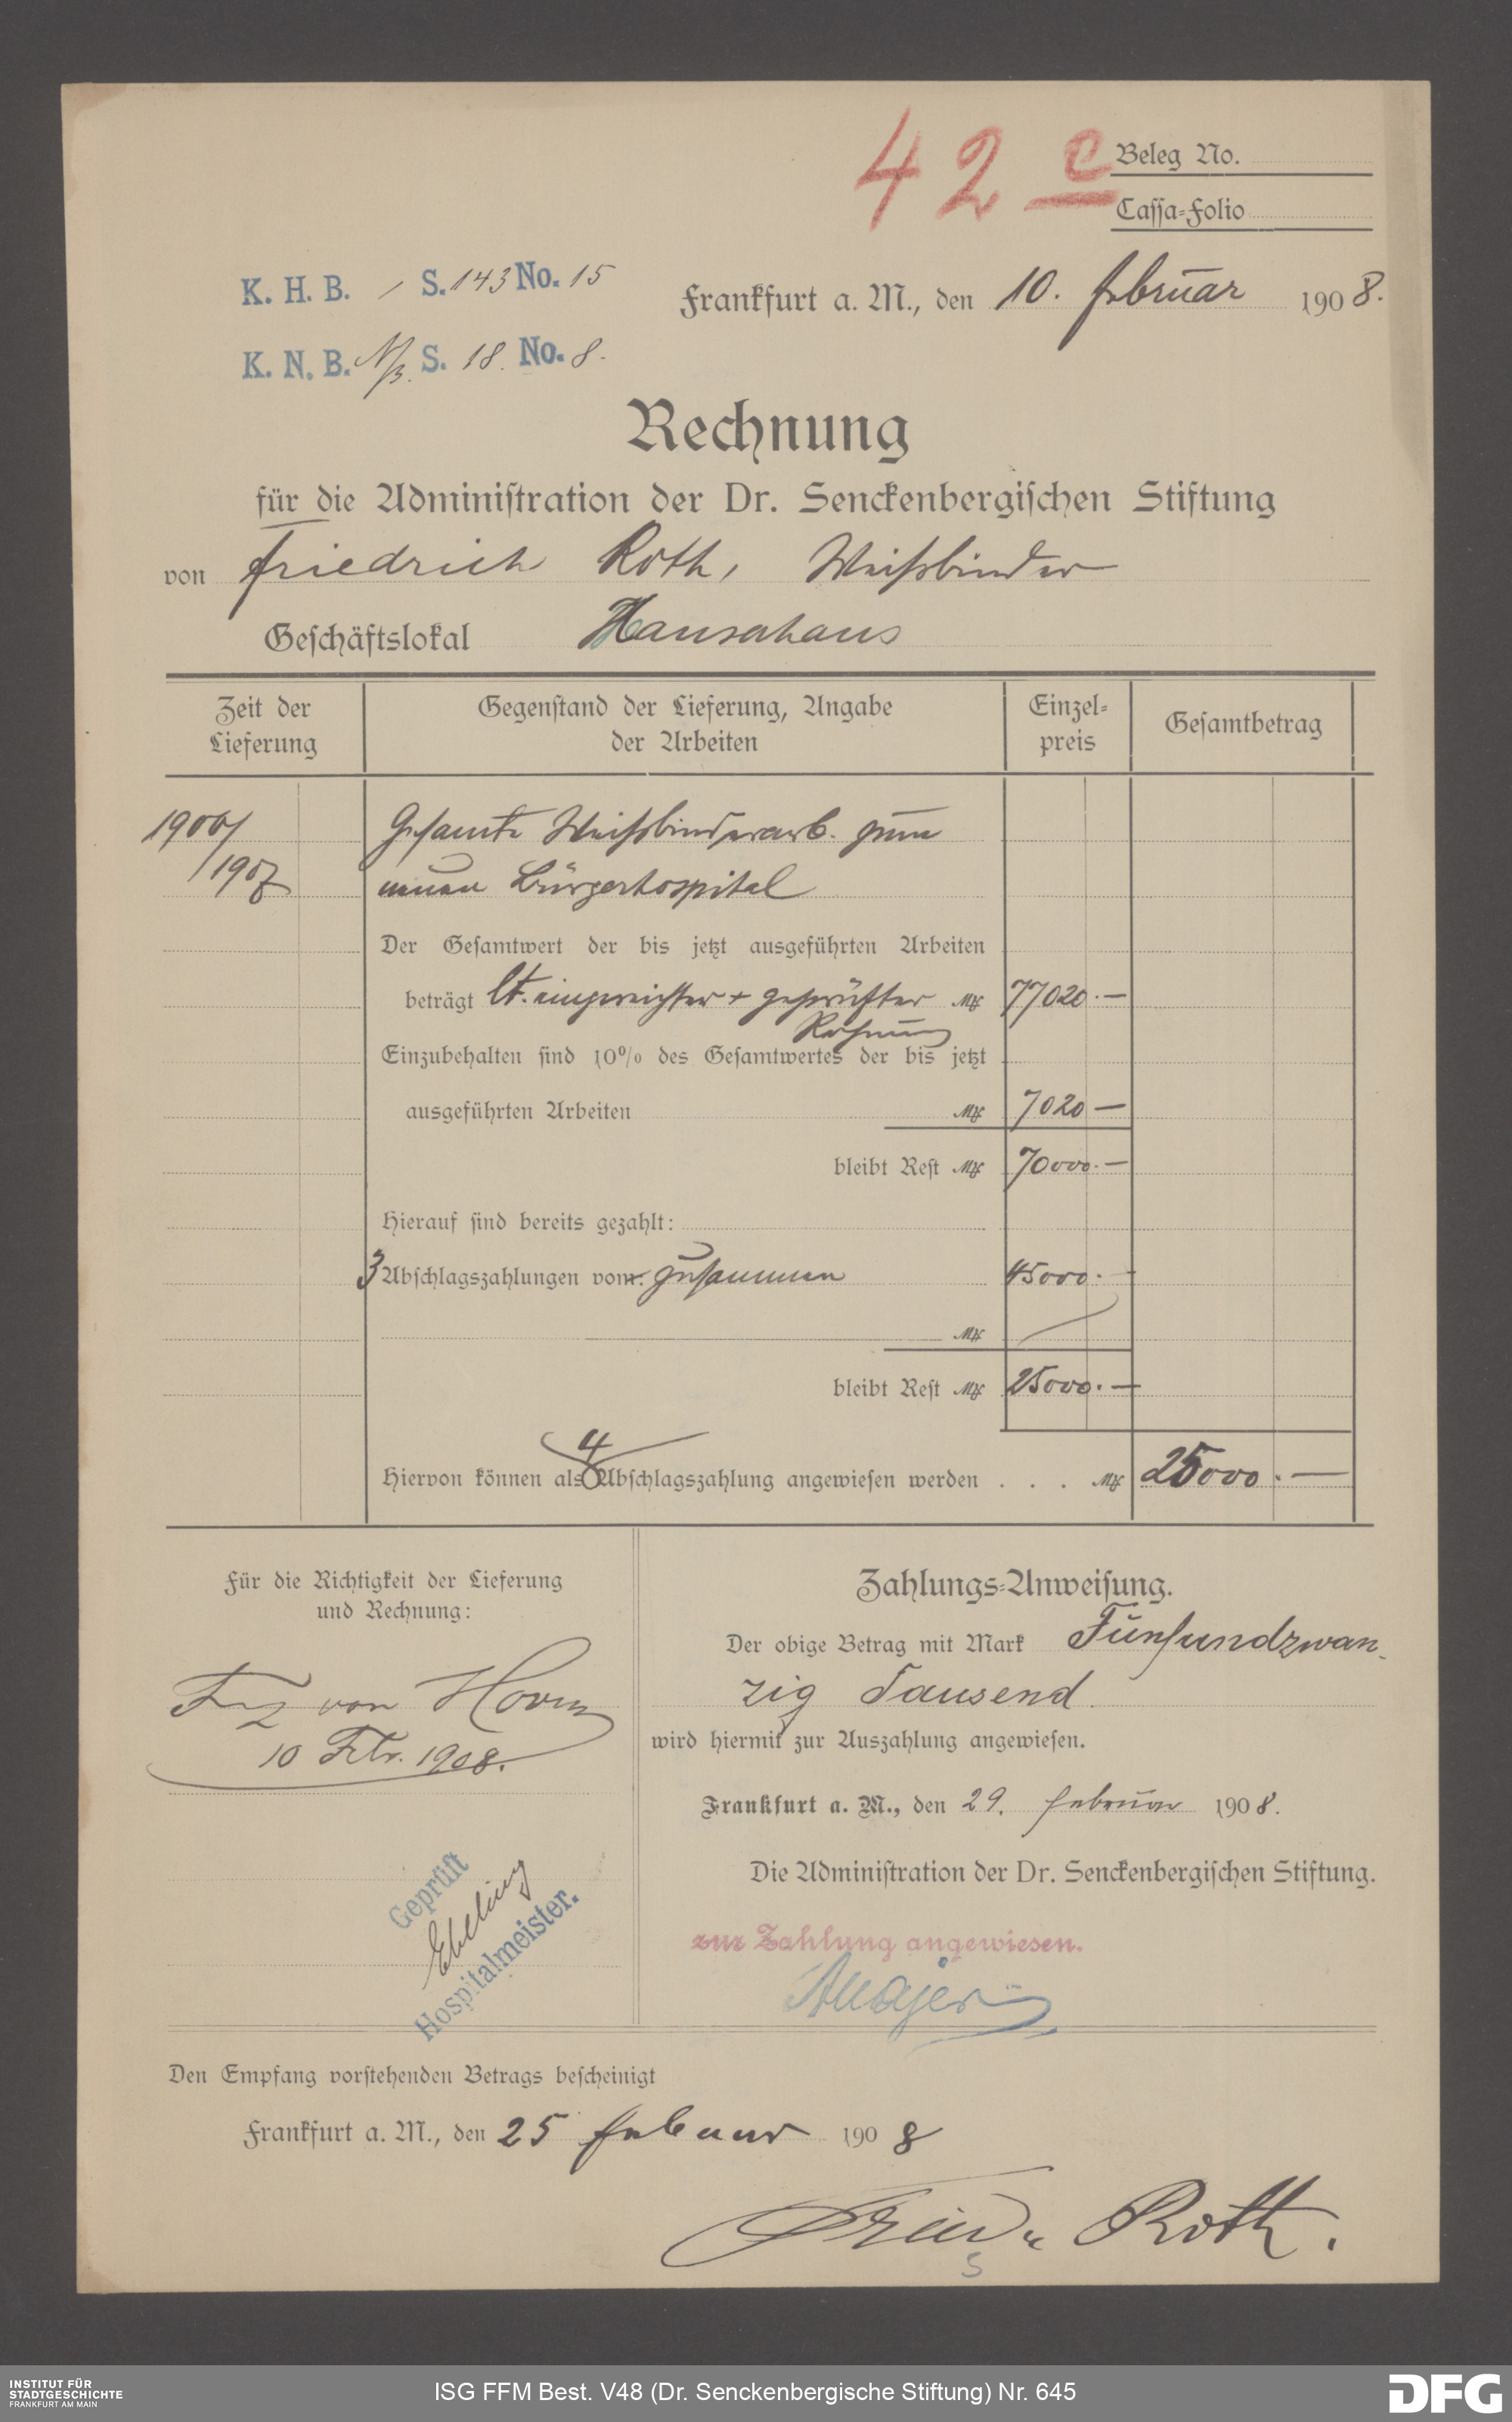 42 c
Beleg No.
Cassa-Folio
K. H. B. / S. 143 No. 15
Frankfurt a. M., den 10. Februar 1908.
K. N. B. N/B. S. 18. No. 8.
Rechnung
für die Administration der Dr. Senckenbergischen Stiftung
von Friedrich Roth, Weißbinder
Geschäftslokal Hansahaus
Zeit der Lieferung
Gegenstand der Lieferung, Angabe der Arbeiten
Einzel-preis
Gesamtbetrag
1906/ Gesamte Weißbinderarb. zum
/1907 neuen Bürgerhospital
Der Gesamtwert der bis jetzt ausgeführten Arbeiten
beträgt lt. eingereichter + geprüfter Mk 77020.—
Rechnung
Einzubehalten sind 10% des Gesamtwertes der bis jetzt
ausgeführten Arbeiten Mk 7020 —
bleibt Rest Mk 70000.—
Hierauf sind bereits gezahlt:
3 Abschlagszahlungen vom zusammen 45000.—
Mk
bleibt Rest Mk 25000.—
4
Hiervon können als Abschlagszahlung angewiesen werden . . . Mk 25000.—
Für die Richtigkeit der Lieferung
und Rechnung:
Frz von Hoven
10 Febr. 1908.
Geprüft
Ebeling
Hospitalmeister.
Zahlungs-Anweisung.
Der obige Betrag mit Mark Fünfundzwan-
zig Tausend.
wird hiermit zur Auszahlung angewiesen.
Frankfurt a. M., den 29. Februar 1908.
Die Administration der Dr. Senckenbergischen Stiftung.
zur Zahlung angewiesen.
Den Empfang vorstehenden Betrags bescheinigt
Frankfurt a. M., den 25 Februar 1908
Friedr Roth.
INSTITUT FÜR
STADTGESCHICHTE
FRANKFURT AM MAIN
ISG FFM Best. V48 (Dr. Senckenbergische Stiftung) Nr. 645
DFG